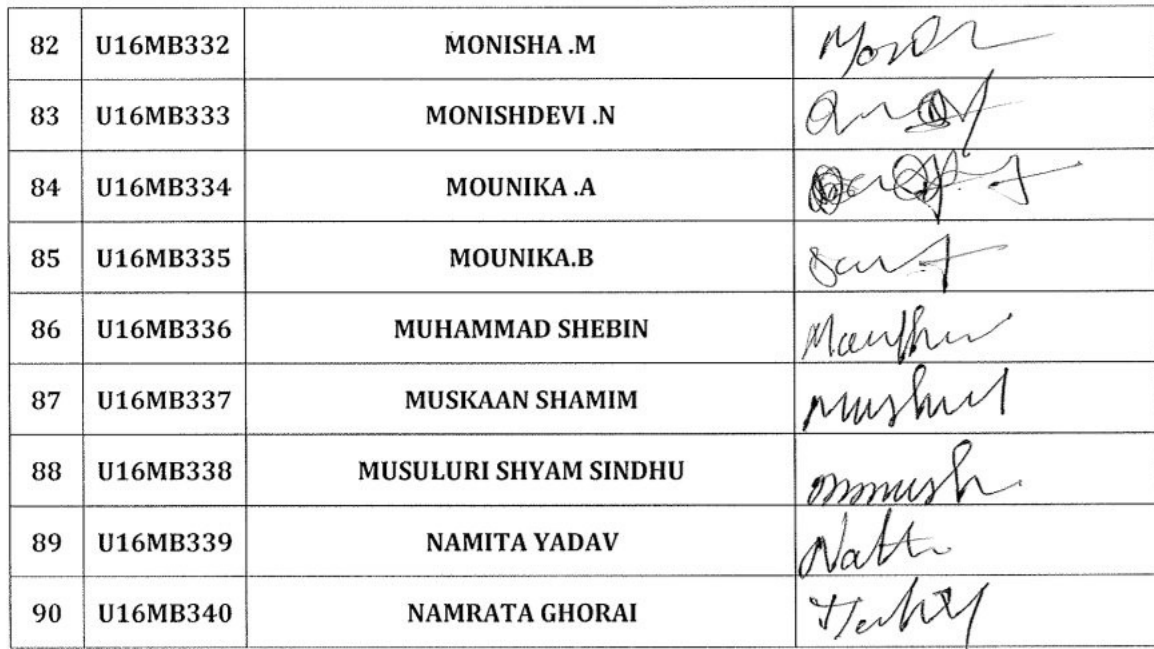 82 U16MB332 MONISHA .M
83 U16MB333 MONISHDEVI .N
84 U16MB334 MOUNIKA .A
85 U16MB335 MOUNIKA.B
86 U16MB336 MUHAMMAD SHEBIN
87 U16MB337 MUSKAAN SHAMIM
88 U16MB338 MUSULURI SHYAM SINDHU
89 U16MB339 NAMITA YADAV
90 U16MB340 NAMRATA GHORAI